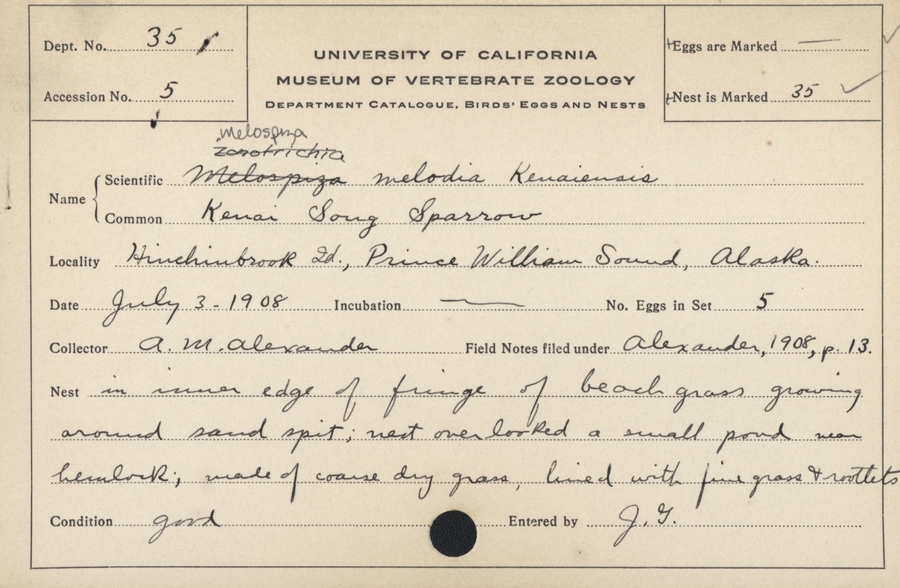 Dept. No. 35
UNIVERSITY OF CALIFORNIA
MUSEUM OF VERTEBRATE ZOOLOGY
DEPARTMENT CATALOGUE, BIRDS' EGGS AND NESTS
Eggs are Marked —
Accession No. 5
Nest is Marked 35 ✓
Melospiza
Zonotrichia
Name { Scientific Melospiza melodia Kenaiensis
Common Kenai Song Sparrow
Locality Hinchinbrook Id., Prince William Sound, Alaska.
Date July 3 - 1908 Incubation — No. Eggs in Set 5
Collector A. M. Alexander Field Notes filed under Alexander, 1908, p. 13.
Nest in inner edge of fringe of beach grass growing
around sand spit; nest overlooked a small pond near
hemlock; made of coarse dry grass, lined with fine grass & rootlets
Condition good Entered by J. G.